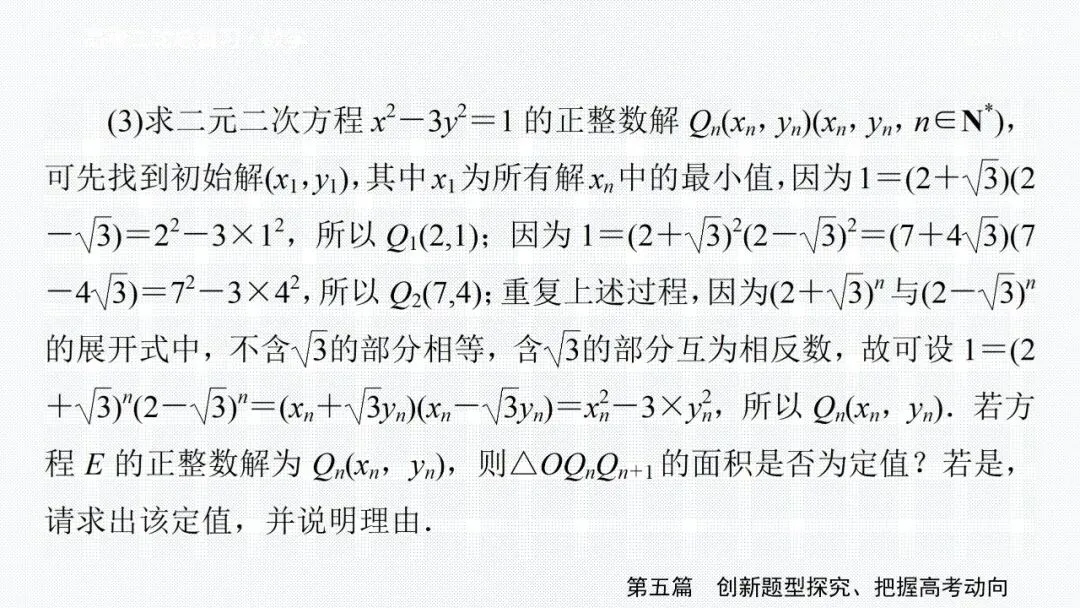 (3)求二元二次方程 x²－3y²＝1 的正整数解 Qₙ(xₙ，yₙ)(xₙ，yₙ，n∈N*)，
可先找到初始解(x₁,y₁),其中x₁为所有解xₙ中的最小值,因为1＝(2＋√3)(2
－√3)＝2²－3×1²，所以 Q₁(2,1)；因为 1＝(2＋√3)²(2－√3)²＝(7＋4√3)(7
－4√3)＝7²－3×4²,所以 Q₂(7,4);重复上述过程,因为(2＋√3)ⁿ与(2－√3)ⁿ
的展开式中，不含√3的部分相等，含√3的部分互为相反数，故可设 1＝(2
＋√3)ⁿ(2－√3)ⁿ＝(xₙ＋√3yₙ)(xₙ－√3yₙ)＝xₙ²－3×yₙ²，所以 Qₙ(xₙ，yₙ)．若方
程 E 的正整数解为 Qₙ(xₙ，yₙ)，则△OQₙQₙ₊₁的面积是否为定值？若是，
请求出该定值，并说明理由．
第五篇 创新题型探究、把握高考动向